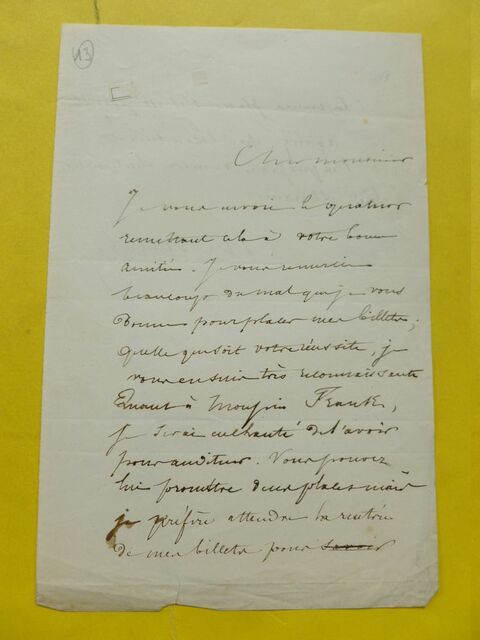 43
Cher monsieur
Je vous envoie le quatuor
remettant cela à votre bonne
amitié. Je vous remercie
beaucoup du mal que je vous
donne pour placer mes billets;
quelle que soit votre réussite, je
vous en suis très reconnaissante
Quant à Monsieur Franck,
je serai enchanté de l'avoir
pour auditeur. Vous pouvez
lui promettre deux places mais
je préfère attendre la rentrée
de mes billets pour savoir